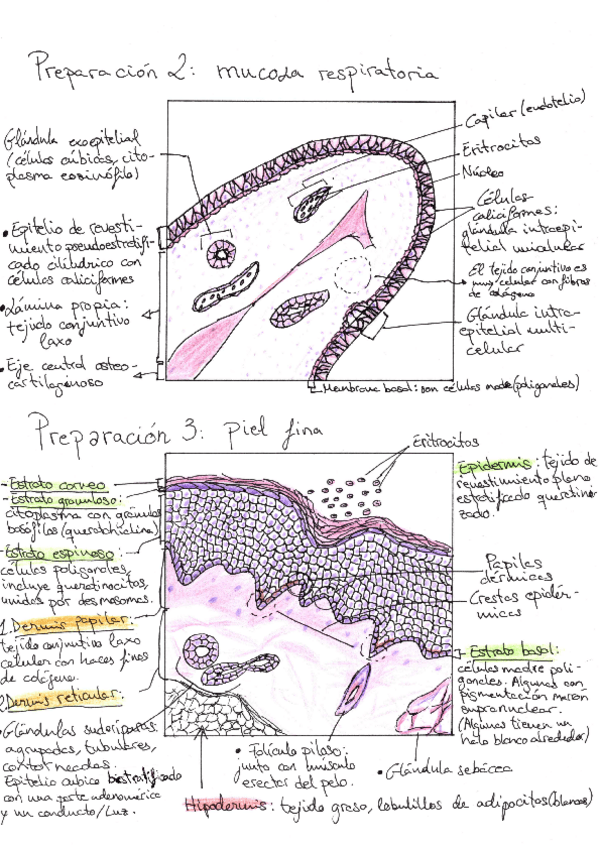 Preparación 2: mucosa respiratoria
Glándula exoepitelial
(células cúbicas, cito-
plasma eosinófilo)
• Epitelio de revesti-
miento pseudoestratifi-
cado cilíndrico con
células caliciformes
• Lámina propia:
tejido conjuntivo
laxo
• Eje central osteo-
cartilaginoso
Capilar (endotelio)
Eritrocitos
Núcleo
Células
caliciformes:
glándula intraepi-
telial unicelular
El tejido conjuntivo es
muy celular con fibras
de colágeno
Glándula intra-
epitelial multi-
celular
Membrana basal: son células madre (poligonales)
Preparación 3: piel fina
Eritrocitos
- Estrato corneo
- Estrato granuloso:
citoplasma con gránulos
basófilos (queratohialina)
- Estrato espinoso:
células poligonales,
incluye queratinocitos,
unidos por desmosomas.
1. Dermis papilar:
tejido conjuntivo laxo
celular con haces finos
de colágeno.
Dermis reticular:
• Glándulas sudoríparas:
agrupadas, tubulares,
contorneadas.
Epitelio cúbico biestratificado
con una parte adenomérica
y un conducto/luz.
Epidermis: tejido de
revestimiento plano
estratificado queratini-
zado.
Papilas
dérmicas
Crestas epidér-
micas
Estrato basal:
células madre poli-
gonales. Algunas con
pigmentación marrón
supranuclear.
(Algunas tienen un
halo blanco alrededor)
• Folículo piloso:
junto con músculo
erector del pelo.
• Glándula sebácea
Hipodermis: tejido graso, lobulillos de adipocitos (blancos)